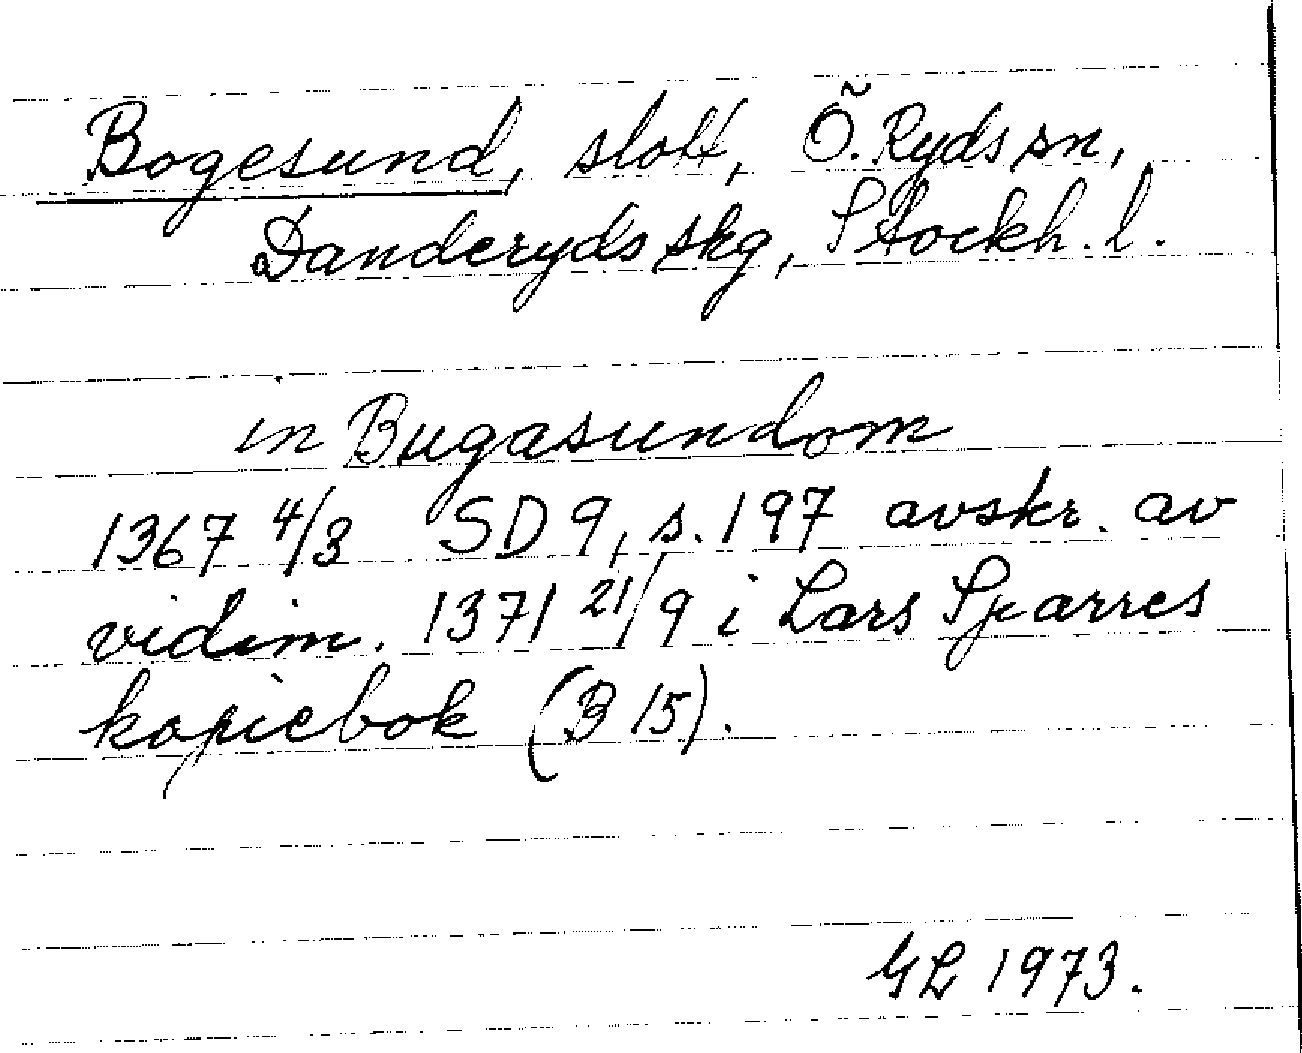 Bogesund, slott, Ö. Ryds sn,
Danderyds skg, Stockh. l.
in Bugasundom
1367 4/3 SD 9, s. 197 avskr. av
vidim. 1371 21/9 i Lars Sparres
kopiebok (B 15).
GL 1973.